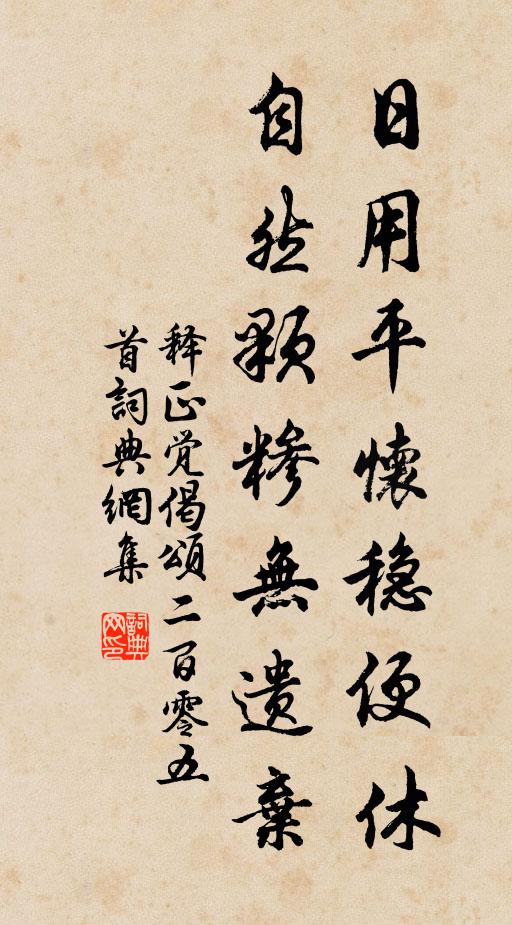 日用平懷穏便休
自然顆糝無遺棄
释正觉偈頌二百零五
首詞典網集
詞典
网印